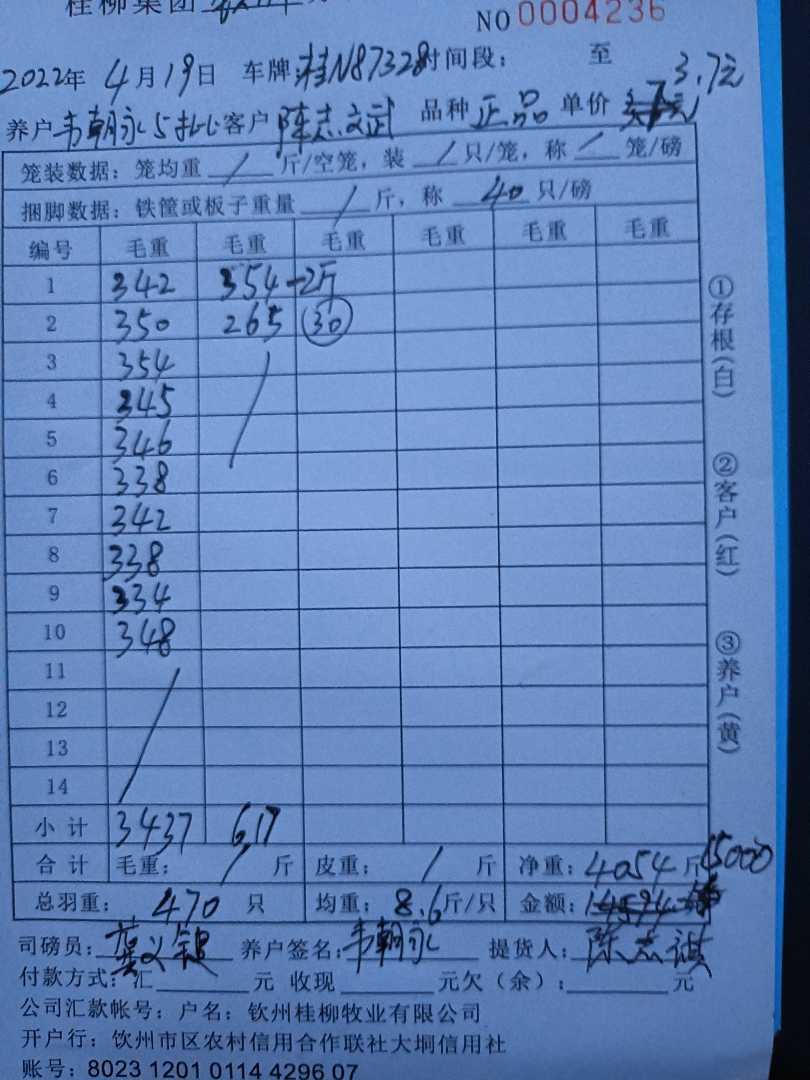 桂柳集团
NO 0004236
2022年 4月19日 车牌:桂N87328时间段: 至
3.7元
养户韦朝永 客户 陈志武 品种 正品 单价
笼装数据:笼均重 / 斤/空笼,装 / 只/笼,称 / 笼/磅
捆脚数据:铁筐或板子重量 / 斤,称 40 只/磅
编号 毛重 毛重 毛重 毛重 毛重 毛重
1 342 354-2斤
2 350 265 (30)
3 354 /
4 345
5 346
6 338
7 342
8 338
9 334
10 348
11 /
12
13
14
小计 3437 617
合计 毛重: / 斤 皮重: / 斤 净重:4054斤 15000
总羽重: 470 只 均重: 8.6斤/只 金额:
司磅员: 养户签名:韦朝永 提货人:陈志祺
付款方式:汇 元 收现 元欠(余): 元
公司汇款帐号:户名:钦州桂柳牧业有限公司
开户行:钦州市区农村信用合作联社大垌信用社
账号:8023 1201 0114 4296 07
①存根(白)
②客户(红)
③养户(黄)